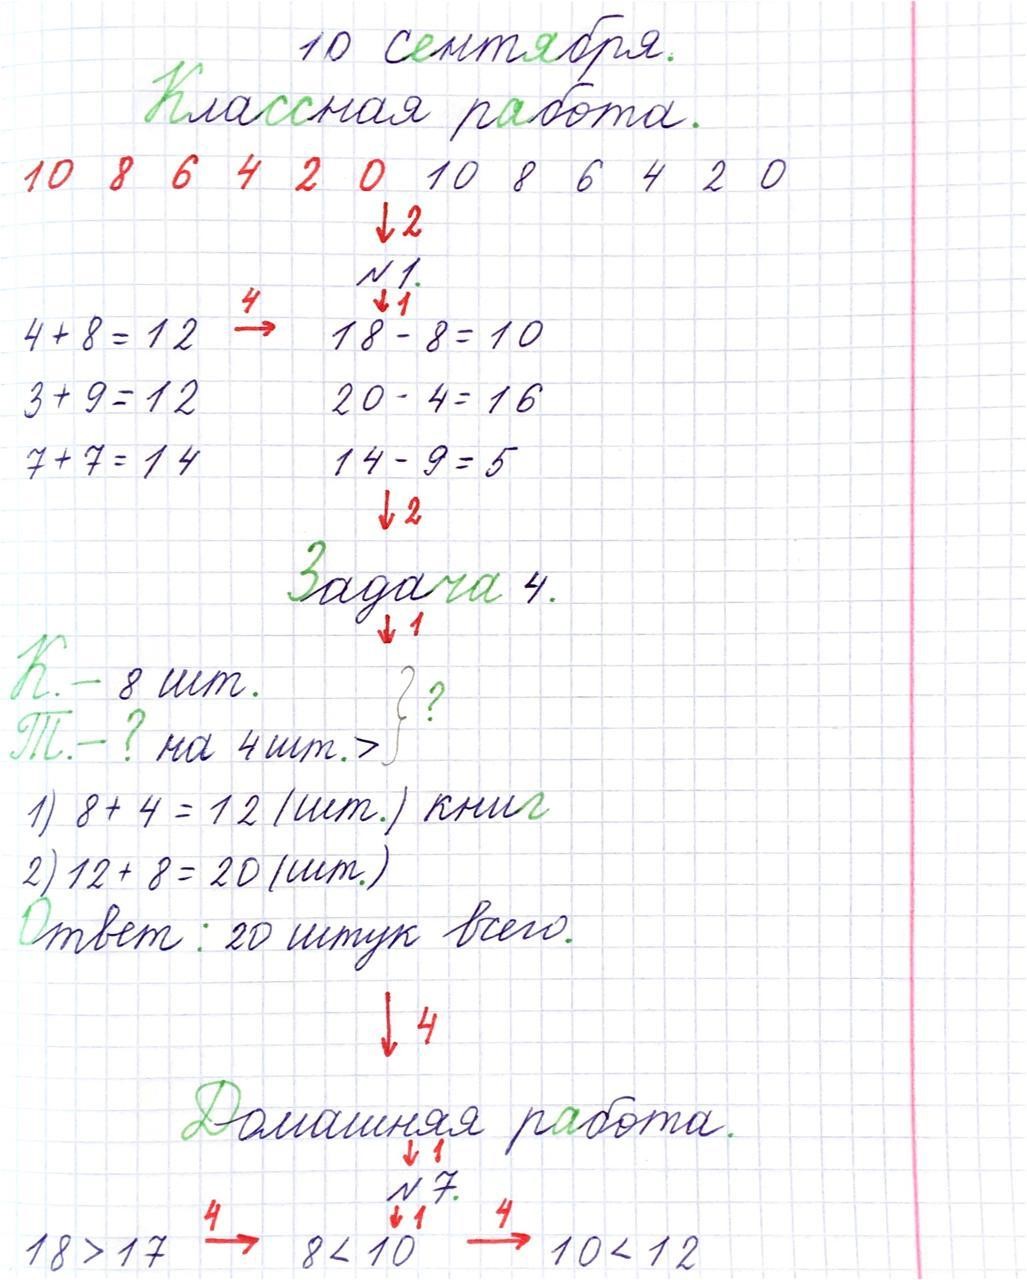 10 сентября.
Классная работа.
10 8 6 4 2 0 10 8 6 4 2 0
↓2
№1.
↓1
4+8=12 4→ 18-8=10
3+9=12 20-4=16
7+7=14 14-9=5
↓2
Задача 4.
↓1
К.– 8 шт. } ?
Т.–? на 4шт.>
1) 8+4=12 (шт.) книг
2) 12+8=20 (шт.)
Ответ: 20 штук всего.
↓4
Домашняя работа.
↓1
№7.
↓1
18>17 4→ 8<10 4→ 10<12